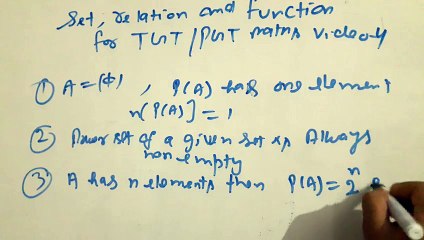 Set, relation and function
for TGT/PGT maths Video 4
① A = (ϕ) , P(A) has one element
n[P(A)] = 1
② Power set of a given set is Always
non empty
③ A has n elements then P(A) = 2ⁿ